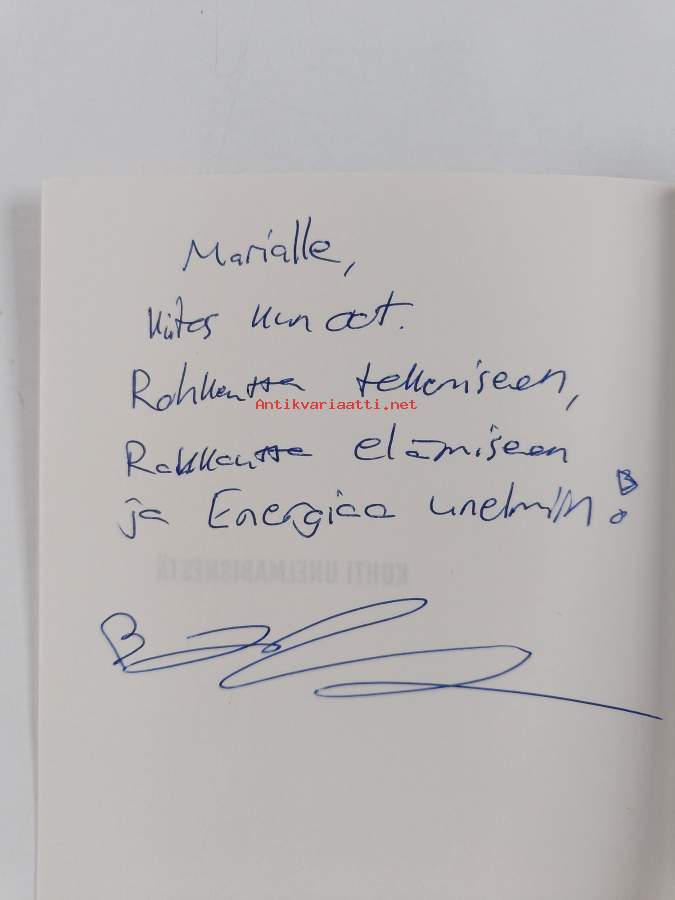 Marialle,
kiitos kun oot.
Rohkeutta tekemiseen,
Antikvariaatti.net
Rakkautta elämiseen
ja Energiaa unelmiin!
KOHTI UNELMABISNESTÄ